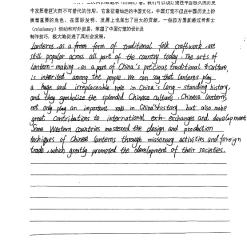 中发挥着巨大而不可替代的作用，它象征着灿烂的中国文化。中国灯笼不仅在中国历史上扮
演着重要的角色，在国际交往、发展上也做出了巨大的贡献。一些西方国家通过传教士
(missionary) 活动和对外贸易，掌握了中国灯笼的设计及
制作技巧，极大地促进了其社会发展。
lanterns as a from form of traditional folk craftwork are
still popular across all part of the country today. The arts of
lantern-making, as a part of China's precious traditional culture,
is inherited among the people. We can say that lanterns play
a huge and irreplaceable role in China's long-standing history,
and they symbolize the splendid Chinese culture. Chinese lanterns
not only play an important role in China history but also make
great contributions to international exchanges and development.
Some Western countries mastered the design and production
techniques of Chinese lanterns through missionary activities and foreign
trade, which greatly promoted the development of their societies.